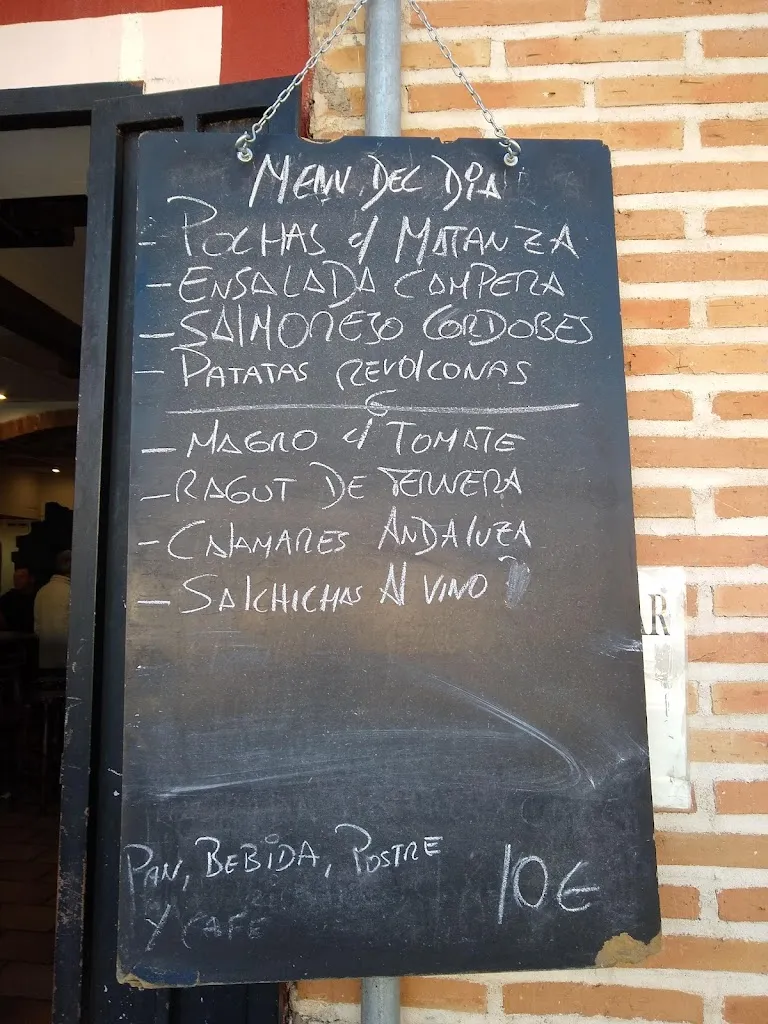 MENU DEL DIA
- POCHAS c/ MATANZA
- ENSALADA CAMPERA
- SALMOREJO CORDOBES
- PATATAS REVOLCONAS
- MAGRO c/ TOMATE
- RAGUT DE TERNERA
- CALAMARES ANDALUZA
- SALCHICHAS AL VINO
PAN, BEBIDA, POSTRE
Y CAFE
10€
AR